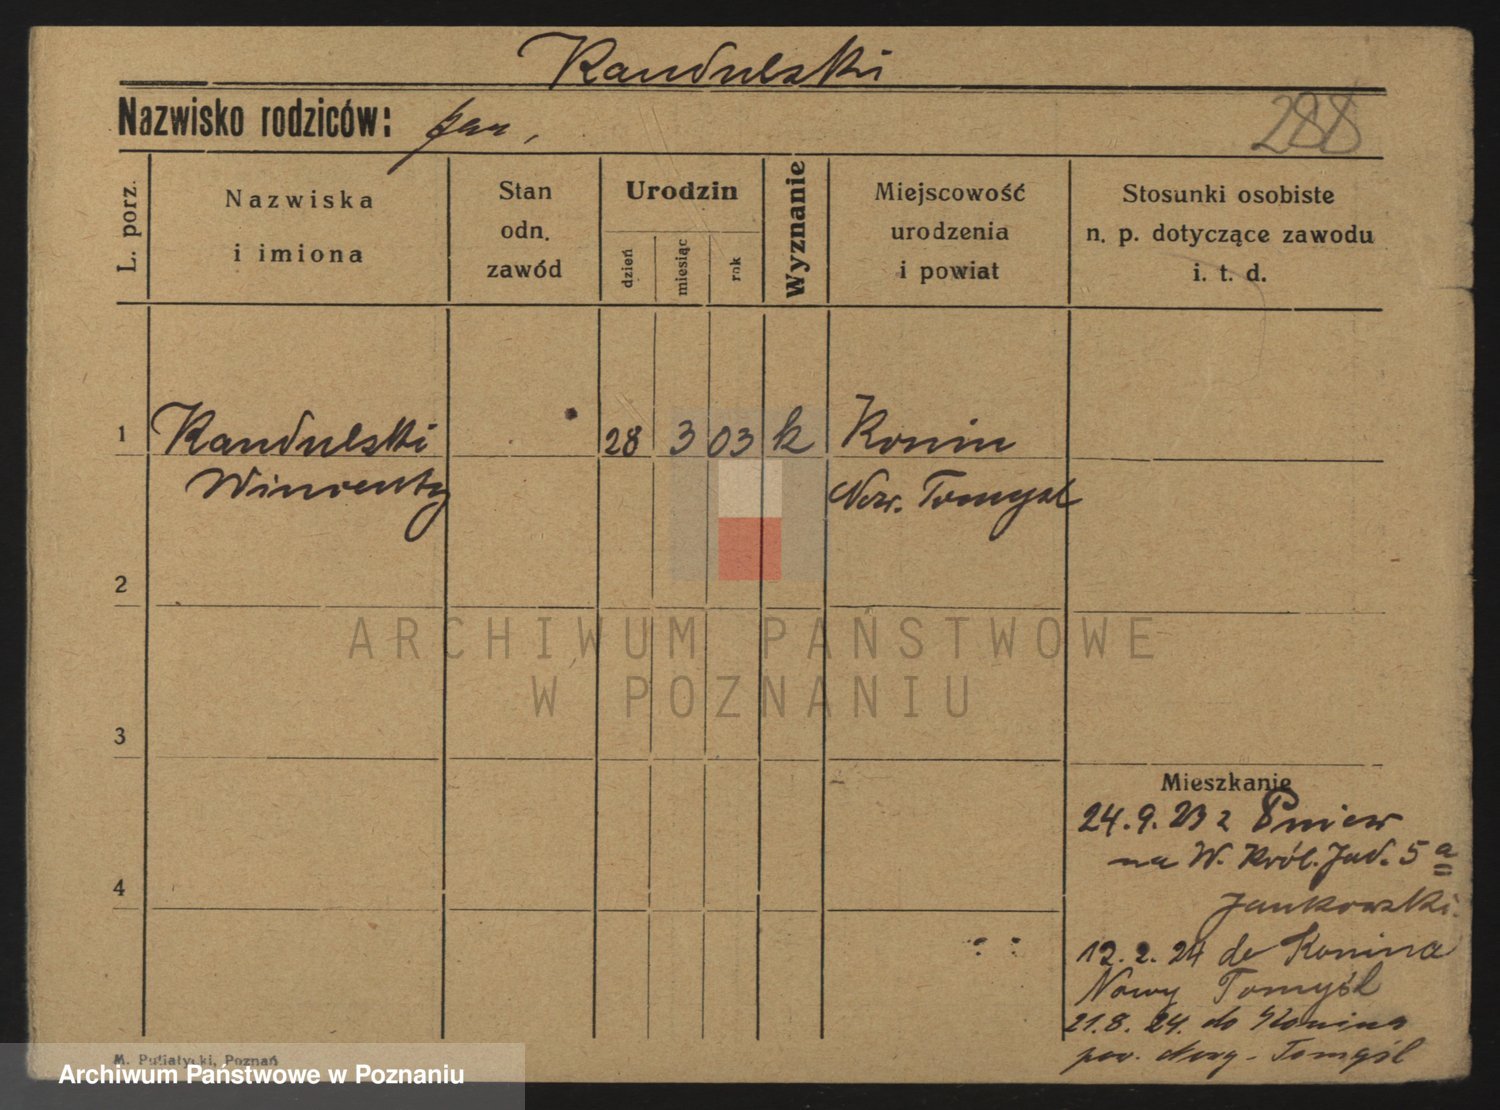 Kandulski
Nazwisko rodziców: Jan,
288
L. porz.
Nazwiska
i imiona
Stan
odn.
zawód
Urodzin
dzień
miesiąc
rok
Wyznanie
Miejscowość
urodzenia
i powiat
Stosunki osobiste
n. p. dotyczące zawodu
i. t. d.
1 Kandulski 28 3 03 k Konin
Wincenty Now. Tomysl
2
ARCHIWUM PAŃSTWOWE
W POZNANIU
3
Mieszkanie
24.9.23 z Pniew
na W. Król. Jad. 5 a
4
Jankowski.
12.2.24 do Konina
Nowy Tomyśl
21.8.24. do Konina
pow. Nowy-Tomyśl
M. Putiatycki, Poznań
Archiwum Państwowe w Poznaniu